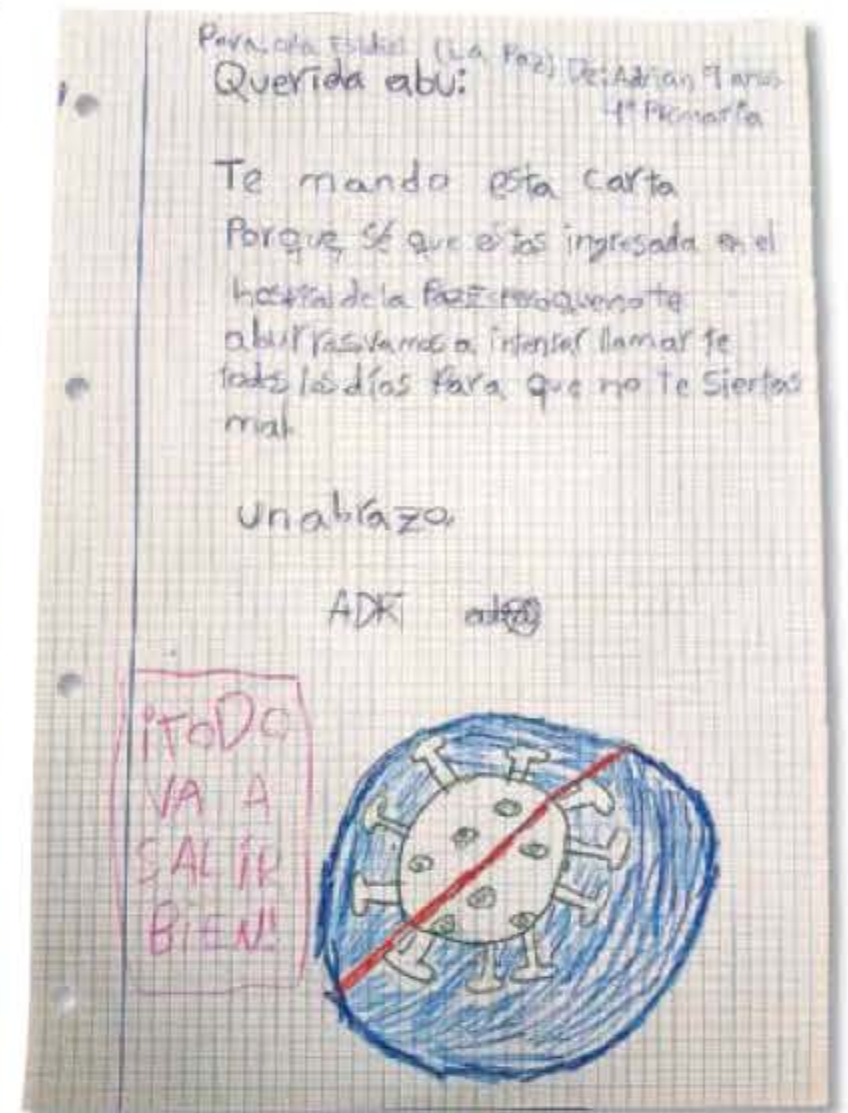 Para (La Paz) De: Adrian 9 años
4º Primaria
Querida abu:
Te mando esta carta
Porque sé que estas ingresada en el
hospital de la Paz Espero que no te
aburras. Vamos a intentar llamar te
todos los días Para que no te sientas
mal.
un abrazo.
ADRI
¡TODO
VA A
SALIR
BIEN!